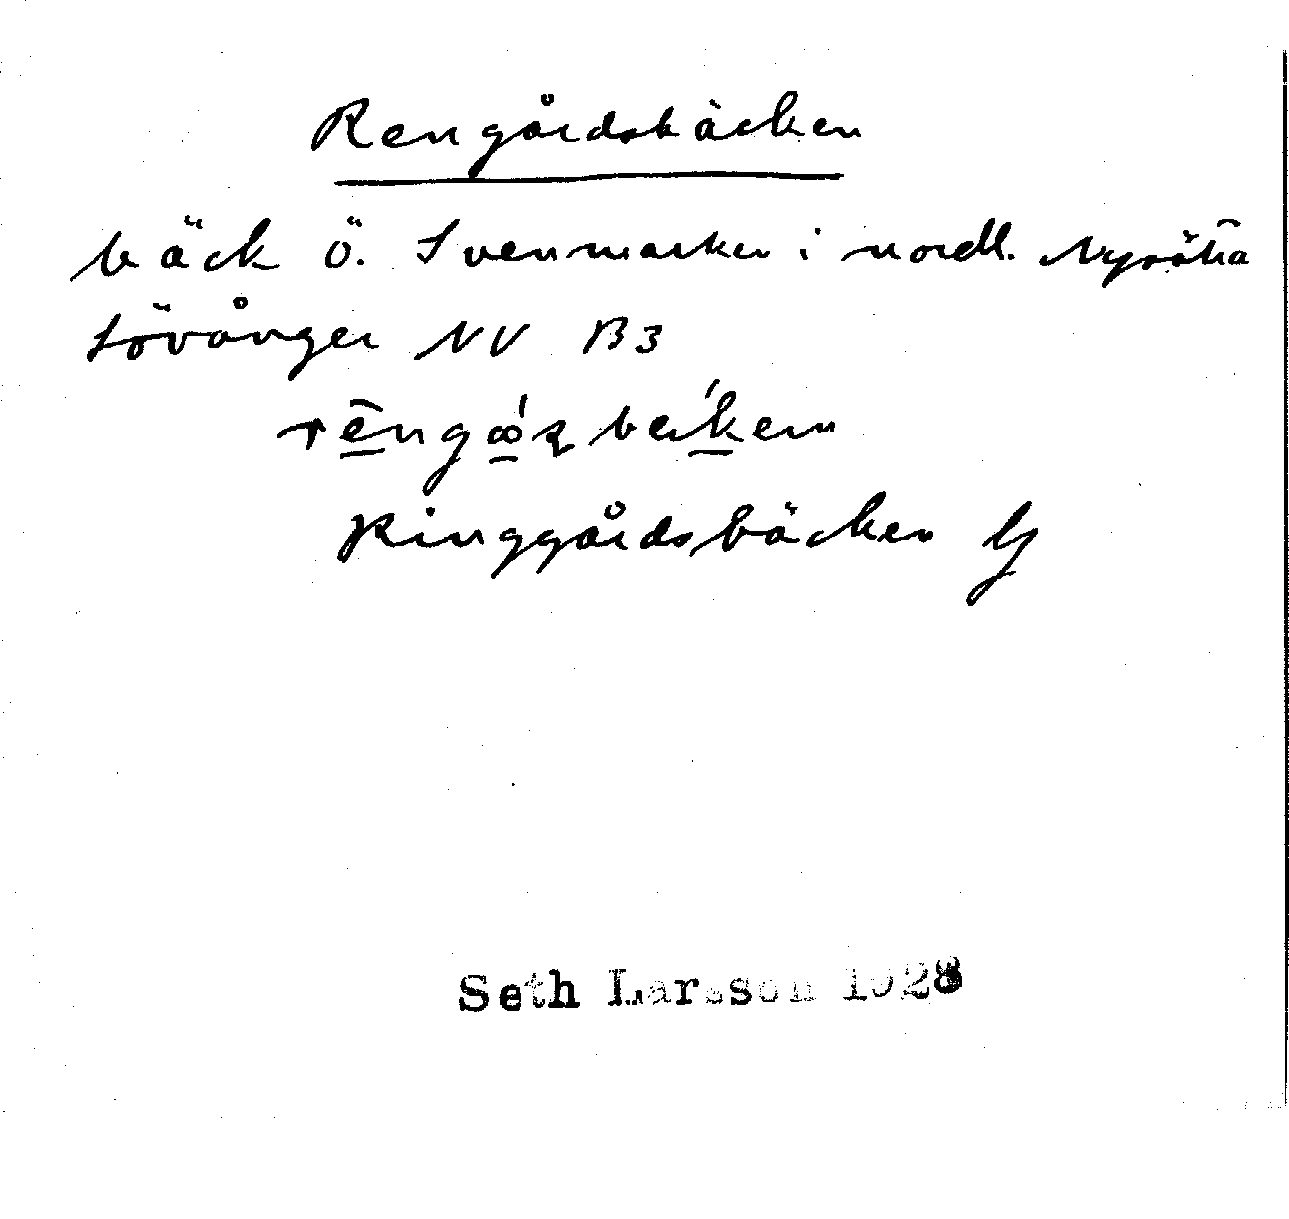 Rengårdsbäcken
bäck ö. Svenmarken i nordl. Nysätra
Lövånger NV B3
Ringgårdsbäcken
Seth Larsson 1928